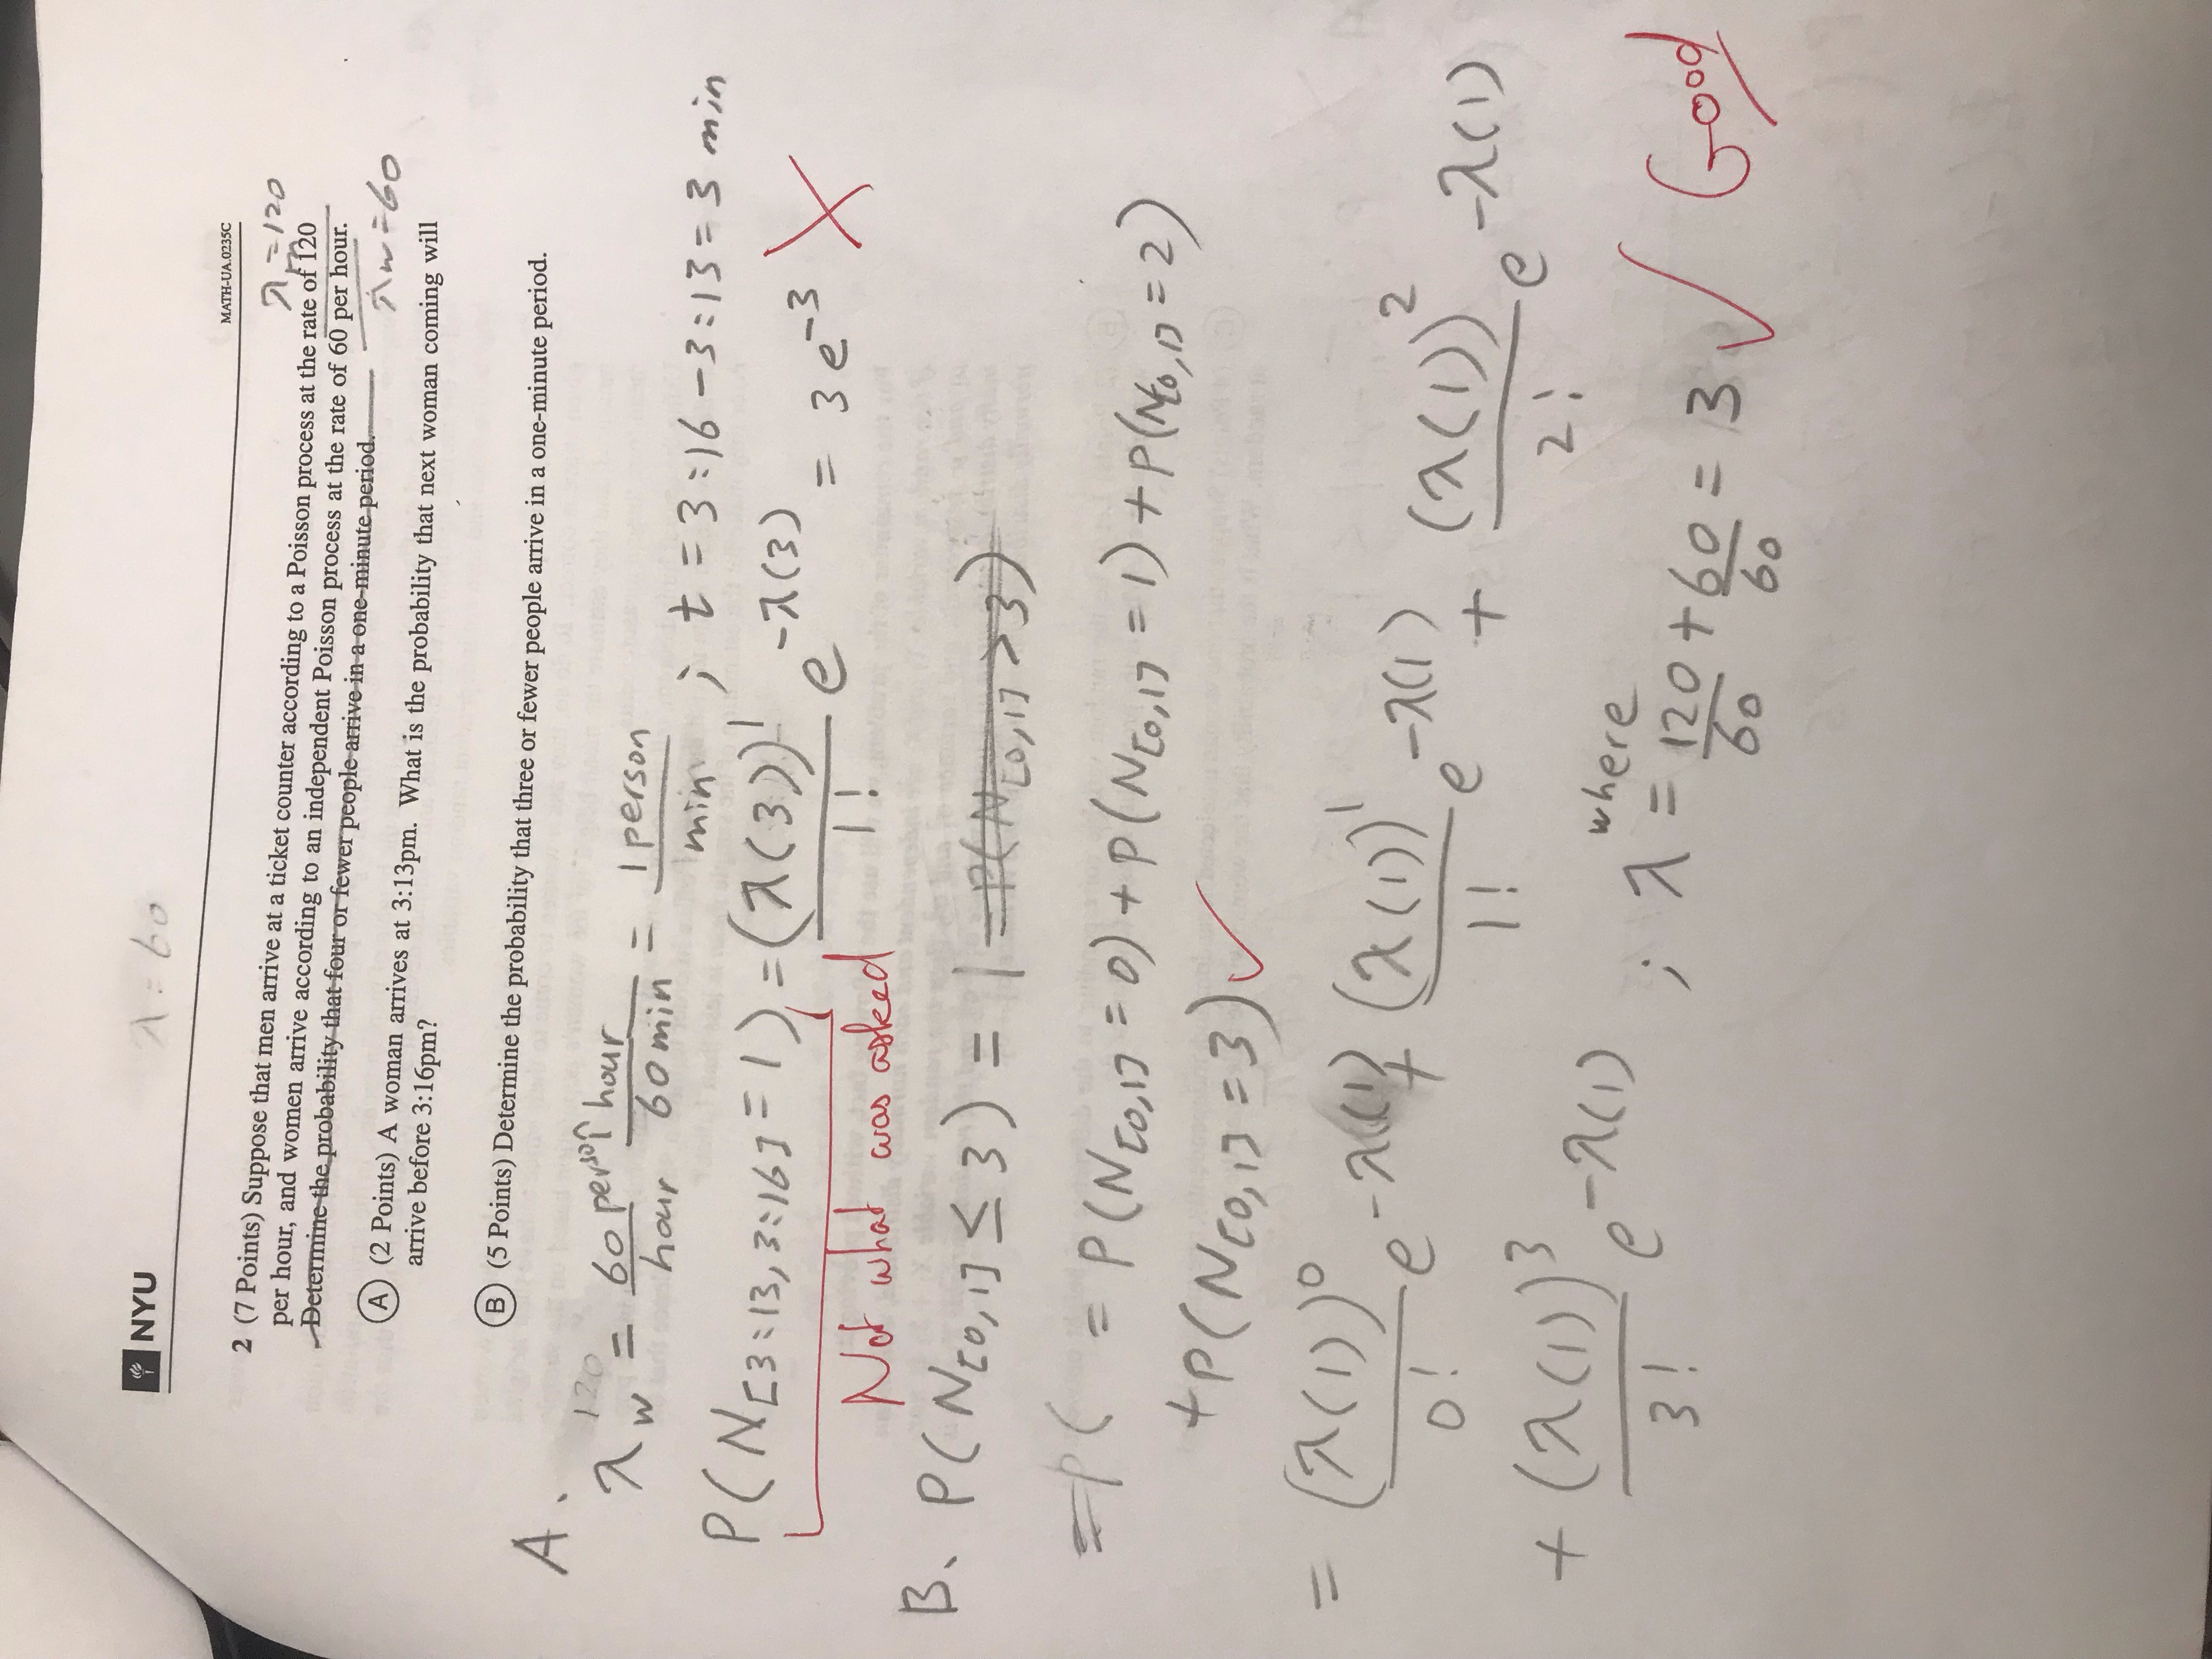 NYU
λ = 60
MATH-UA.0235C
2 (7 Points) Suppose that men arrive at a ticket counter according to a Poisson process at the rate of 120
λm = 120
per hour, and women arrive according to an independent Poisson process at the rate of 60 per hour.
Determine the probability that four or fewer people arrive in a one-minute period.
λw = 60
A (2 Points) A woman arrives at 3:13pm. What is the probability that next woman coming will
arrive before 3:16pm?
B (5 Points) Determine the probability that three or fewer people arrive in a one-minute period.
A.
120
λw = 60 person/hour hour/60 min = 1 person/min ; t = 3:16 - 3:13 = 3 min
P(N[3:13, 3:16] = 1) = (λ(3))^1/1! e^-λ(3) = 3e^-3
Not what was asked
B. P(N[0,1] ≤ 3) = 1 - P(N[0,1] > 3)
= P( = P(N[0,1] = 0) + P(N[0,1] = 1) + P(N[0,1] = 2)
+ P(N[0,1] = 3) ✓
= (λ(1))^0/0! e^-λ(1) + (λ(1))^1/1! e^-λ(1) + (λ(1))^2/2! e^-λ(1)
+ (λ(1))^3/3! e^-λ(1) ; where λ = 120/60 + 60/60 = 3 ✓ Good